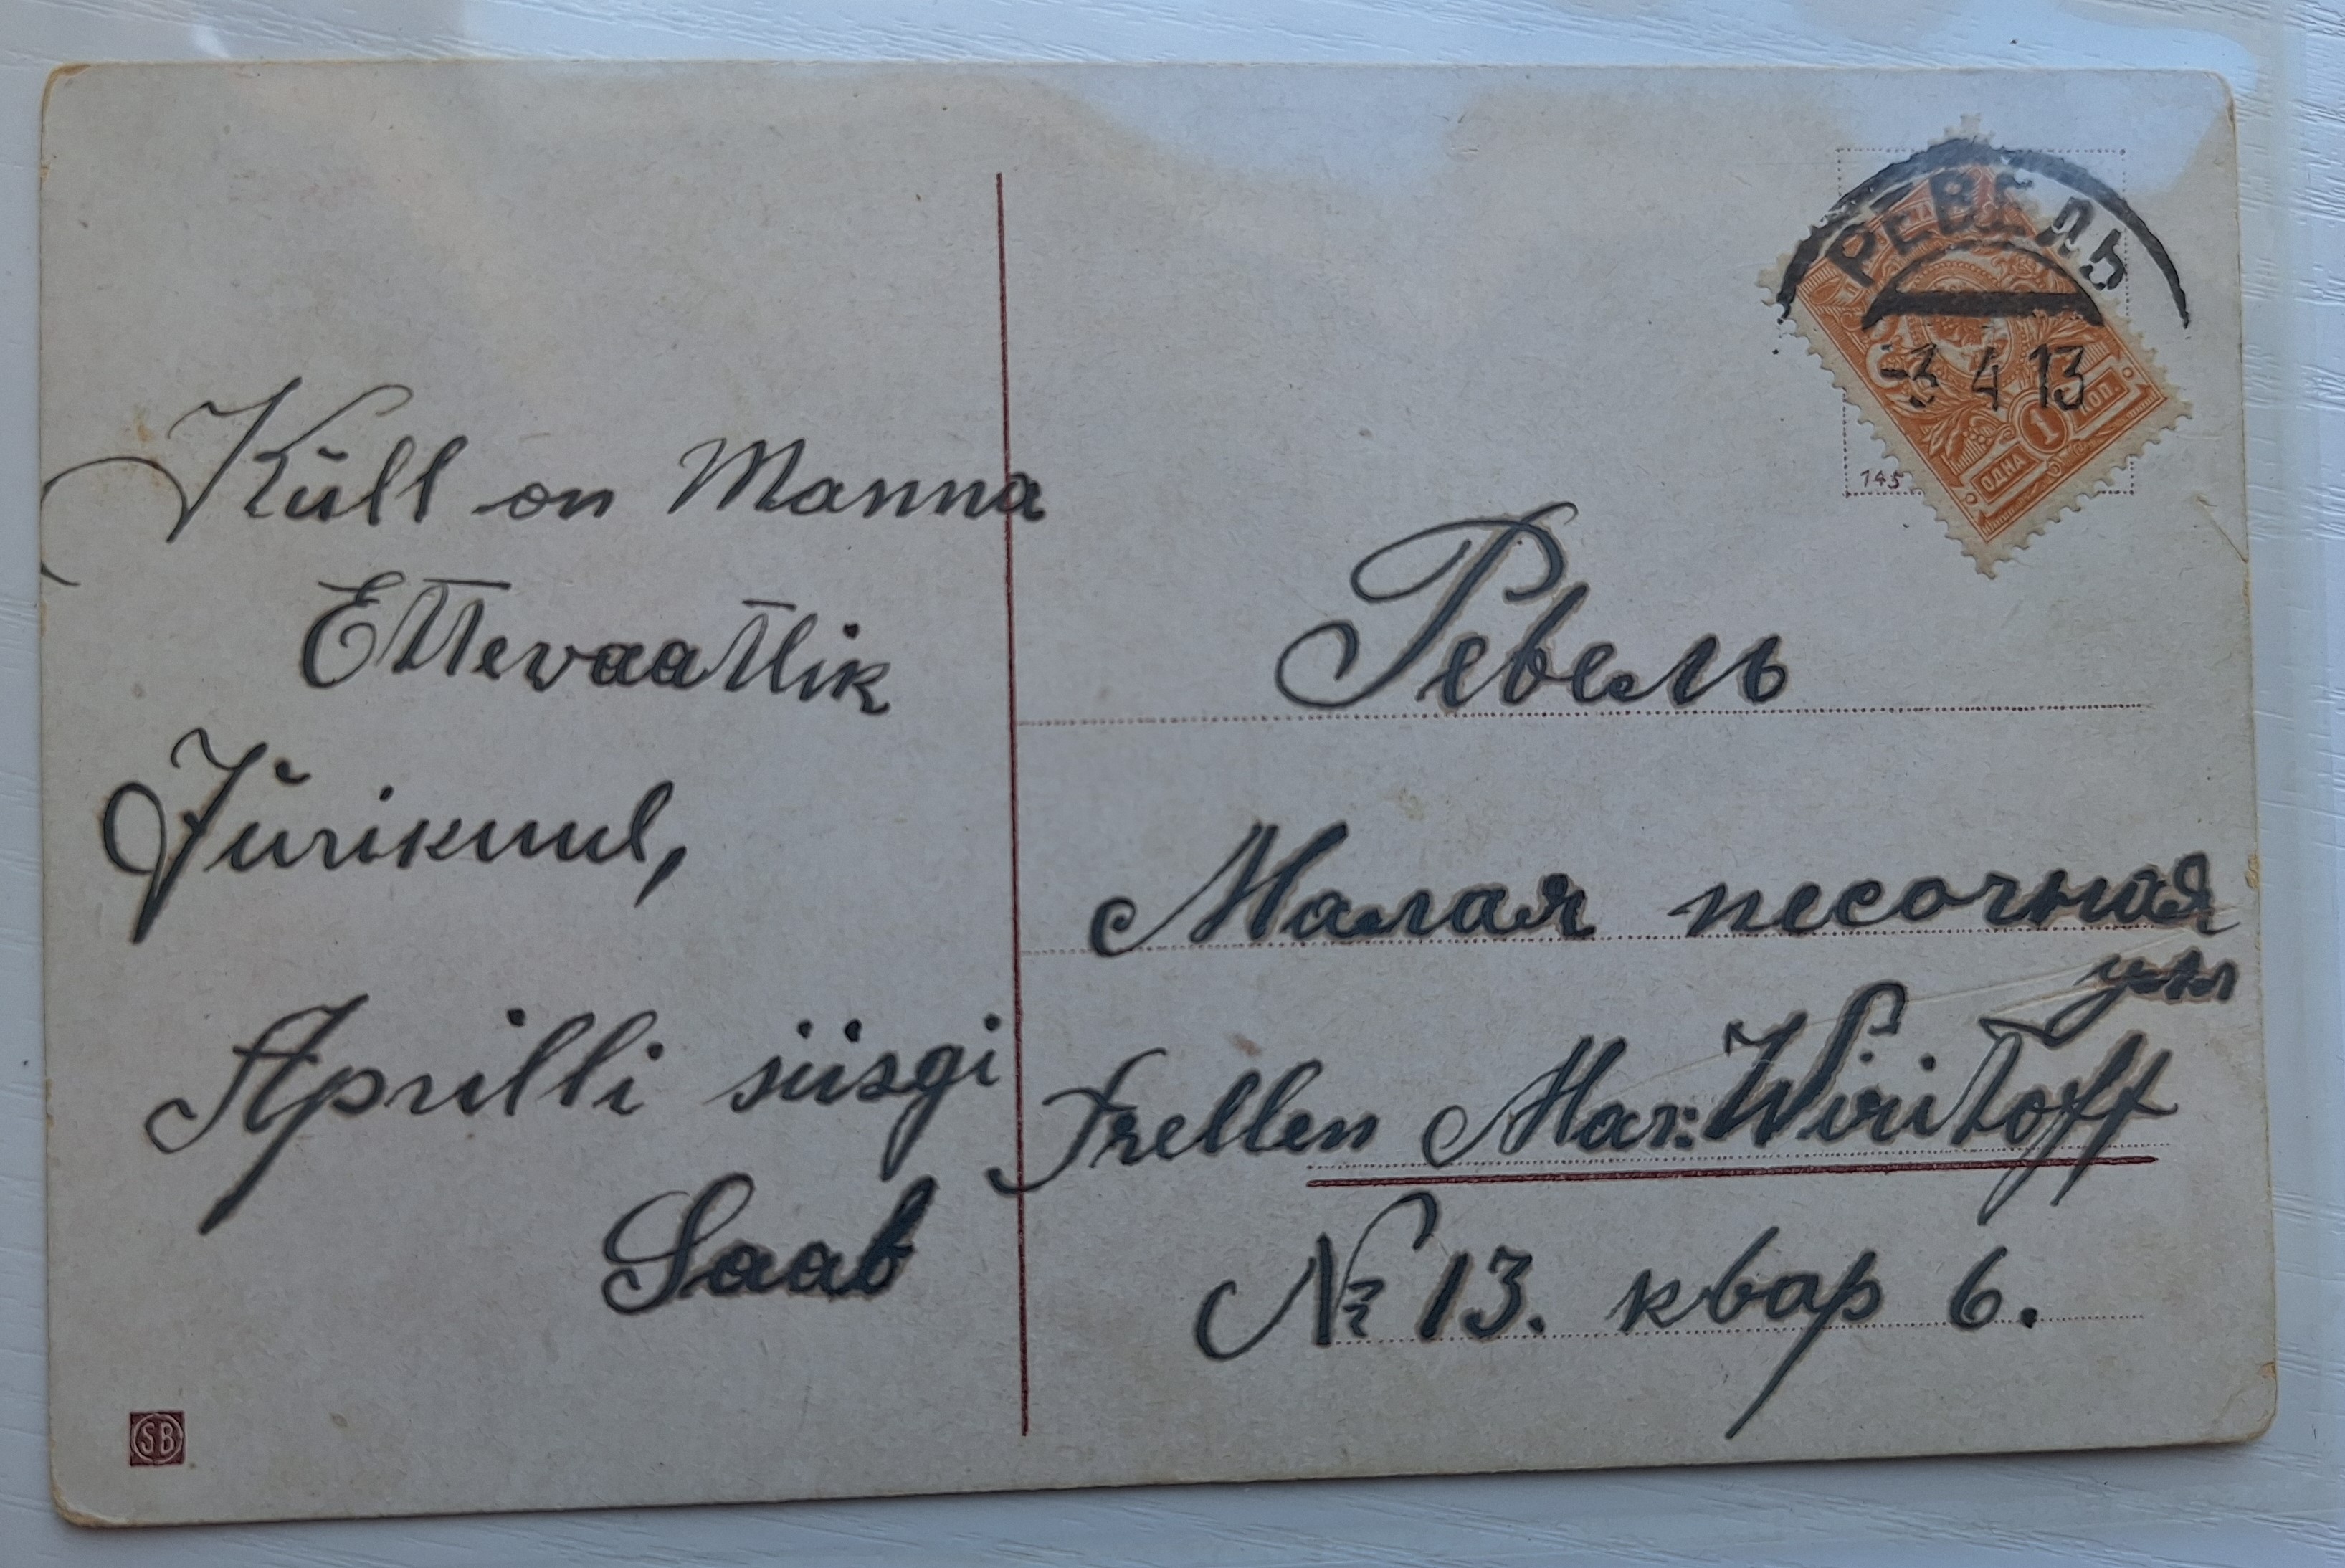 Küll on Manna
Ettevaatlik
Jürikuul,
Aprilli siisgi
Saab
SB
РЕВЕЛЬ
-3 4 13
ОДНА 1 КОП.
145
Ревель
Малая песочная
ул
Frellen Mar: Wiritoff
№ 13. квар 6.